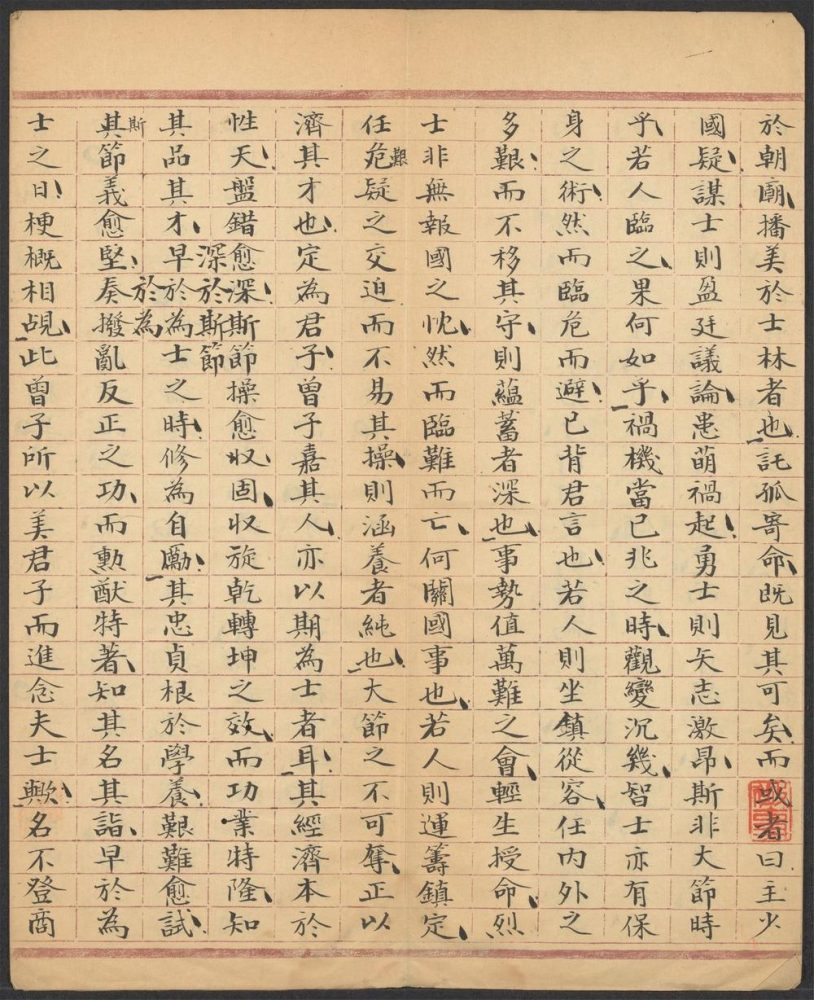 於朝廟播美於士林者也託孤寄命既見其可矣而或者曰主少
國疑謀士則盈廷議論患萌禍起勇士則矢志激昂斯非大節時
乎若人臨之果何如乎禍機當已兆之時觀變沉幾智士亦有保
身之術然而臨危而避已背君言也若人則坐鎮從容任內外之
多艱而不移其守則蘊蓄者深也事勢值萬難之會輕生授命烈
士非無報國之忱然而臨難而亡何關國事也若人則運籌鎮定
艱
任危疑之交迫而不易其操則涵養者純也大節之不可奪正以
濟其才也定為君子曾子嘉其人亦以期為士者耳其經濟本於
性天盤錯愈深斯節操愈收固收旋乾轉坤之效而功業特隆知
深於斯節
其品其才早於為士之時修為自勵其忠貞根於學養艱難愈試
於為
斯
其節義愈堅奏撥亂反正之功而勳猷特著知其名其詣早於為
士之日梗概相覘此曾子所以美君子而進念夫士歟名不登商